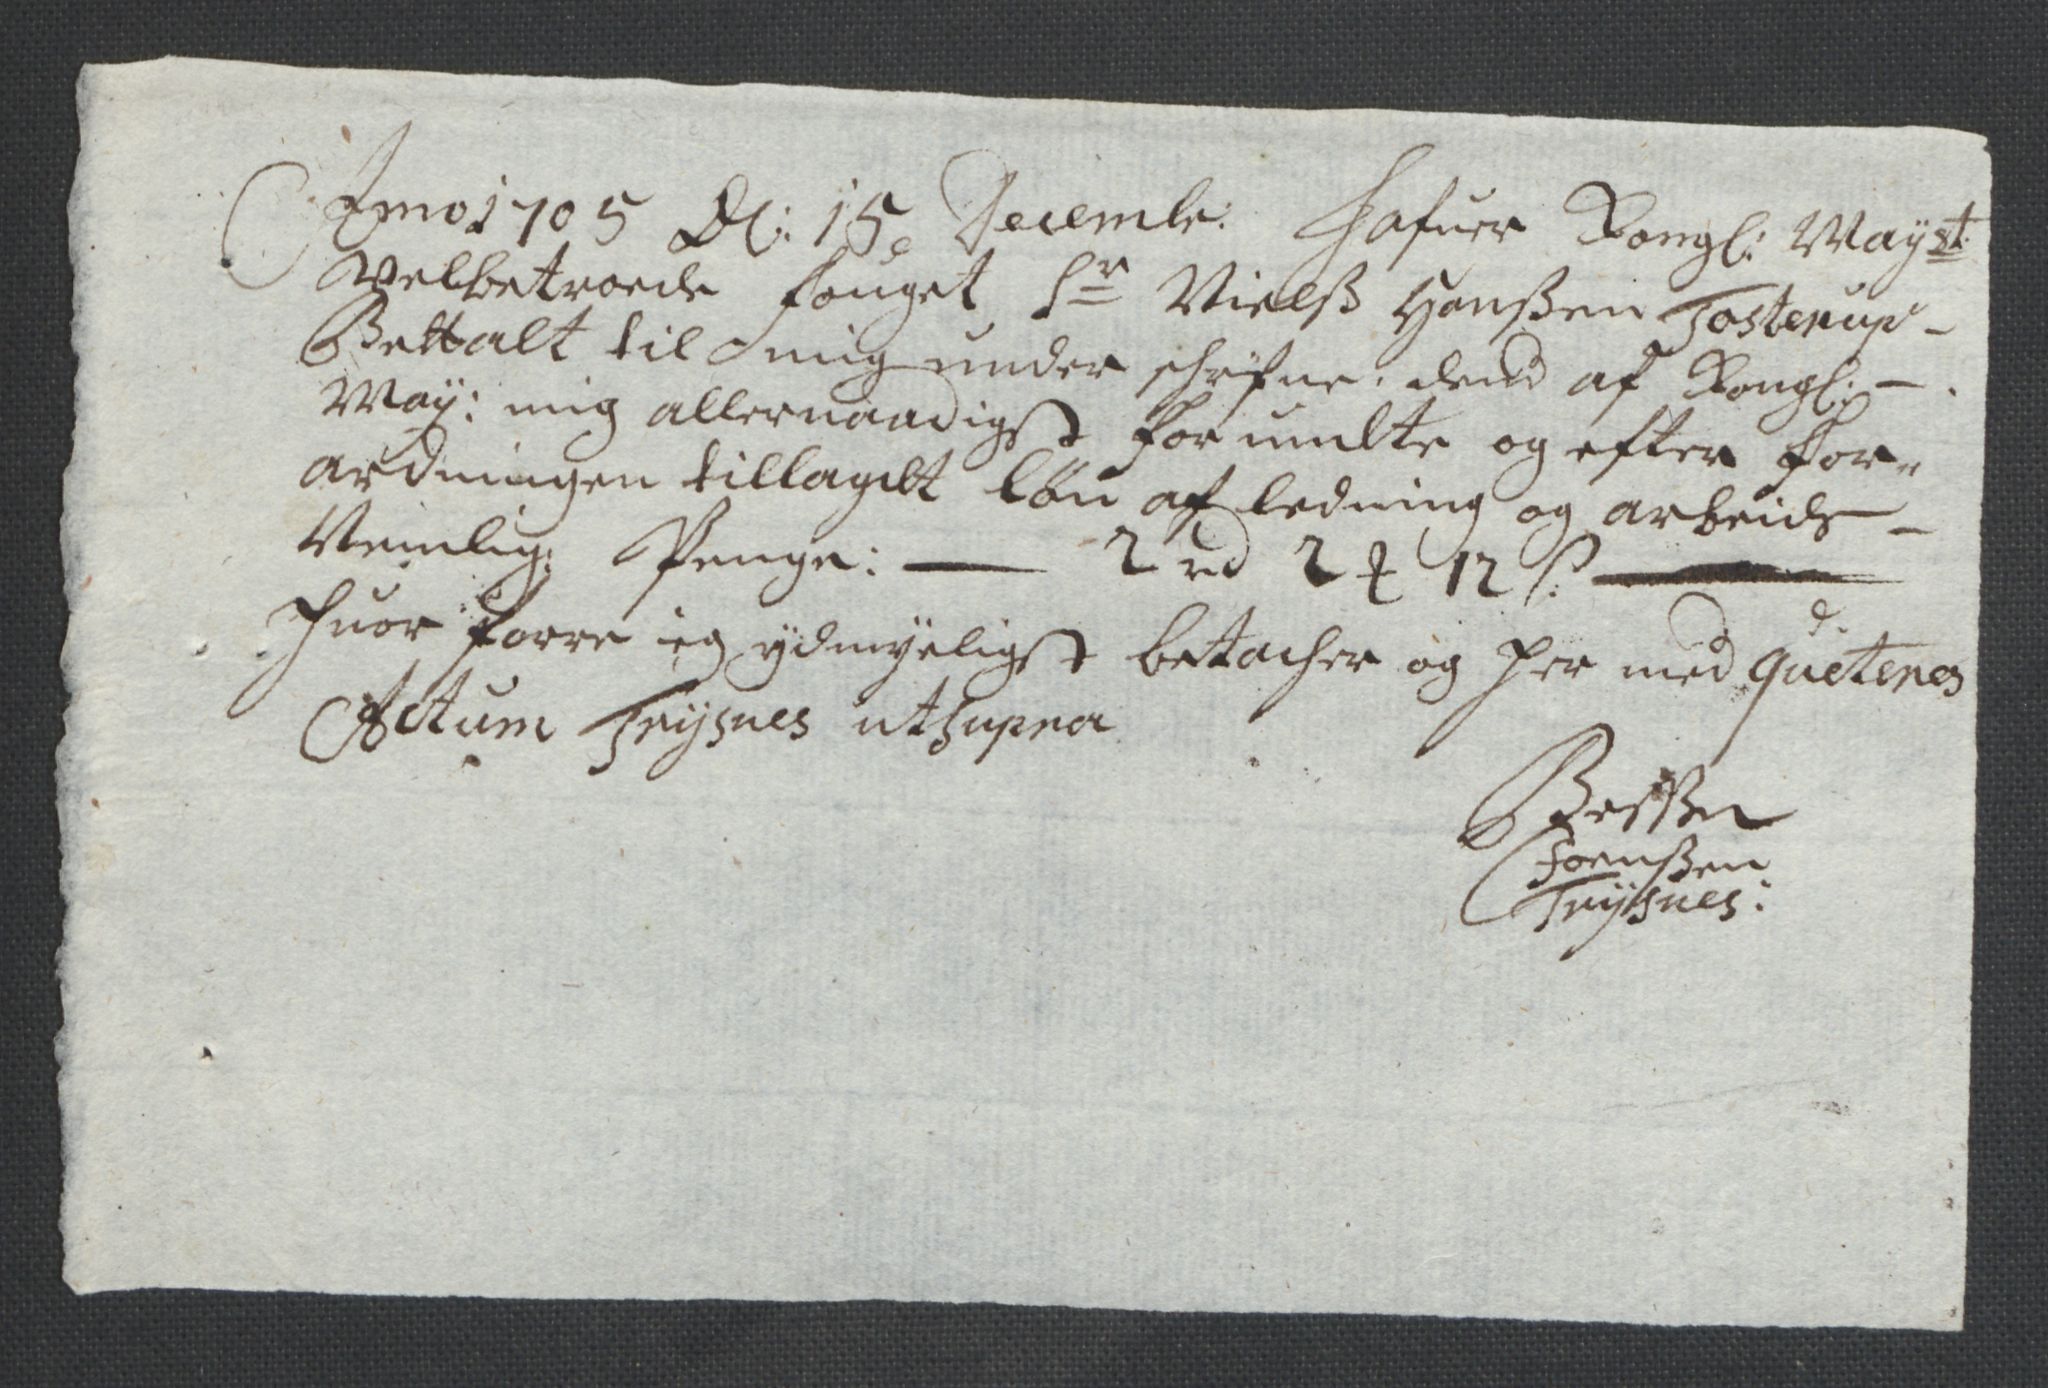 Anno 1705 Dl: 15 Decembr: Hafuer Kongl: Mayst
Velbetroede fouget Sr Nielß Hanßen Tosterup
Bettalt til mig under schrefne. dend af Kongl: -
May: mig allernaadigst for undte og efter for„
ardningen tillagdt løn af ledning og arbeids -
Nemlig: Penge: — 2 rd 2 ₰ 12 s: —
huor forre ieg ydmyeligst betacher og her med quiteres
Actum Trysnes ut supra
Jenßen
Trysnes: